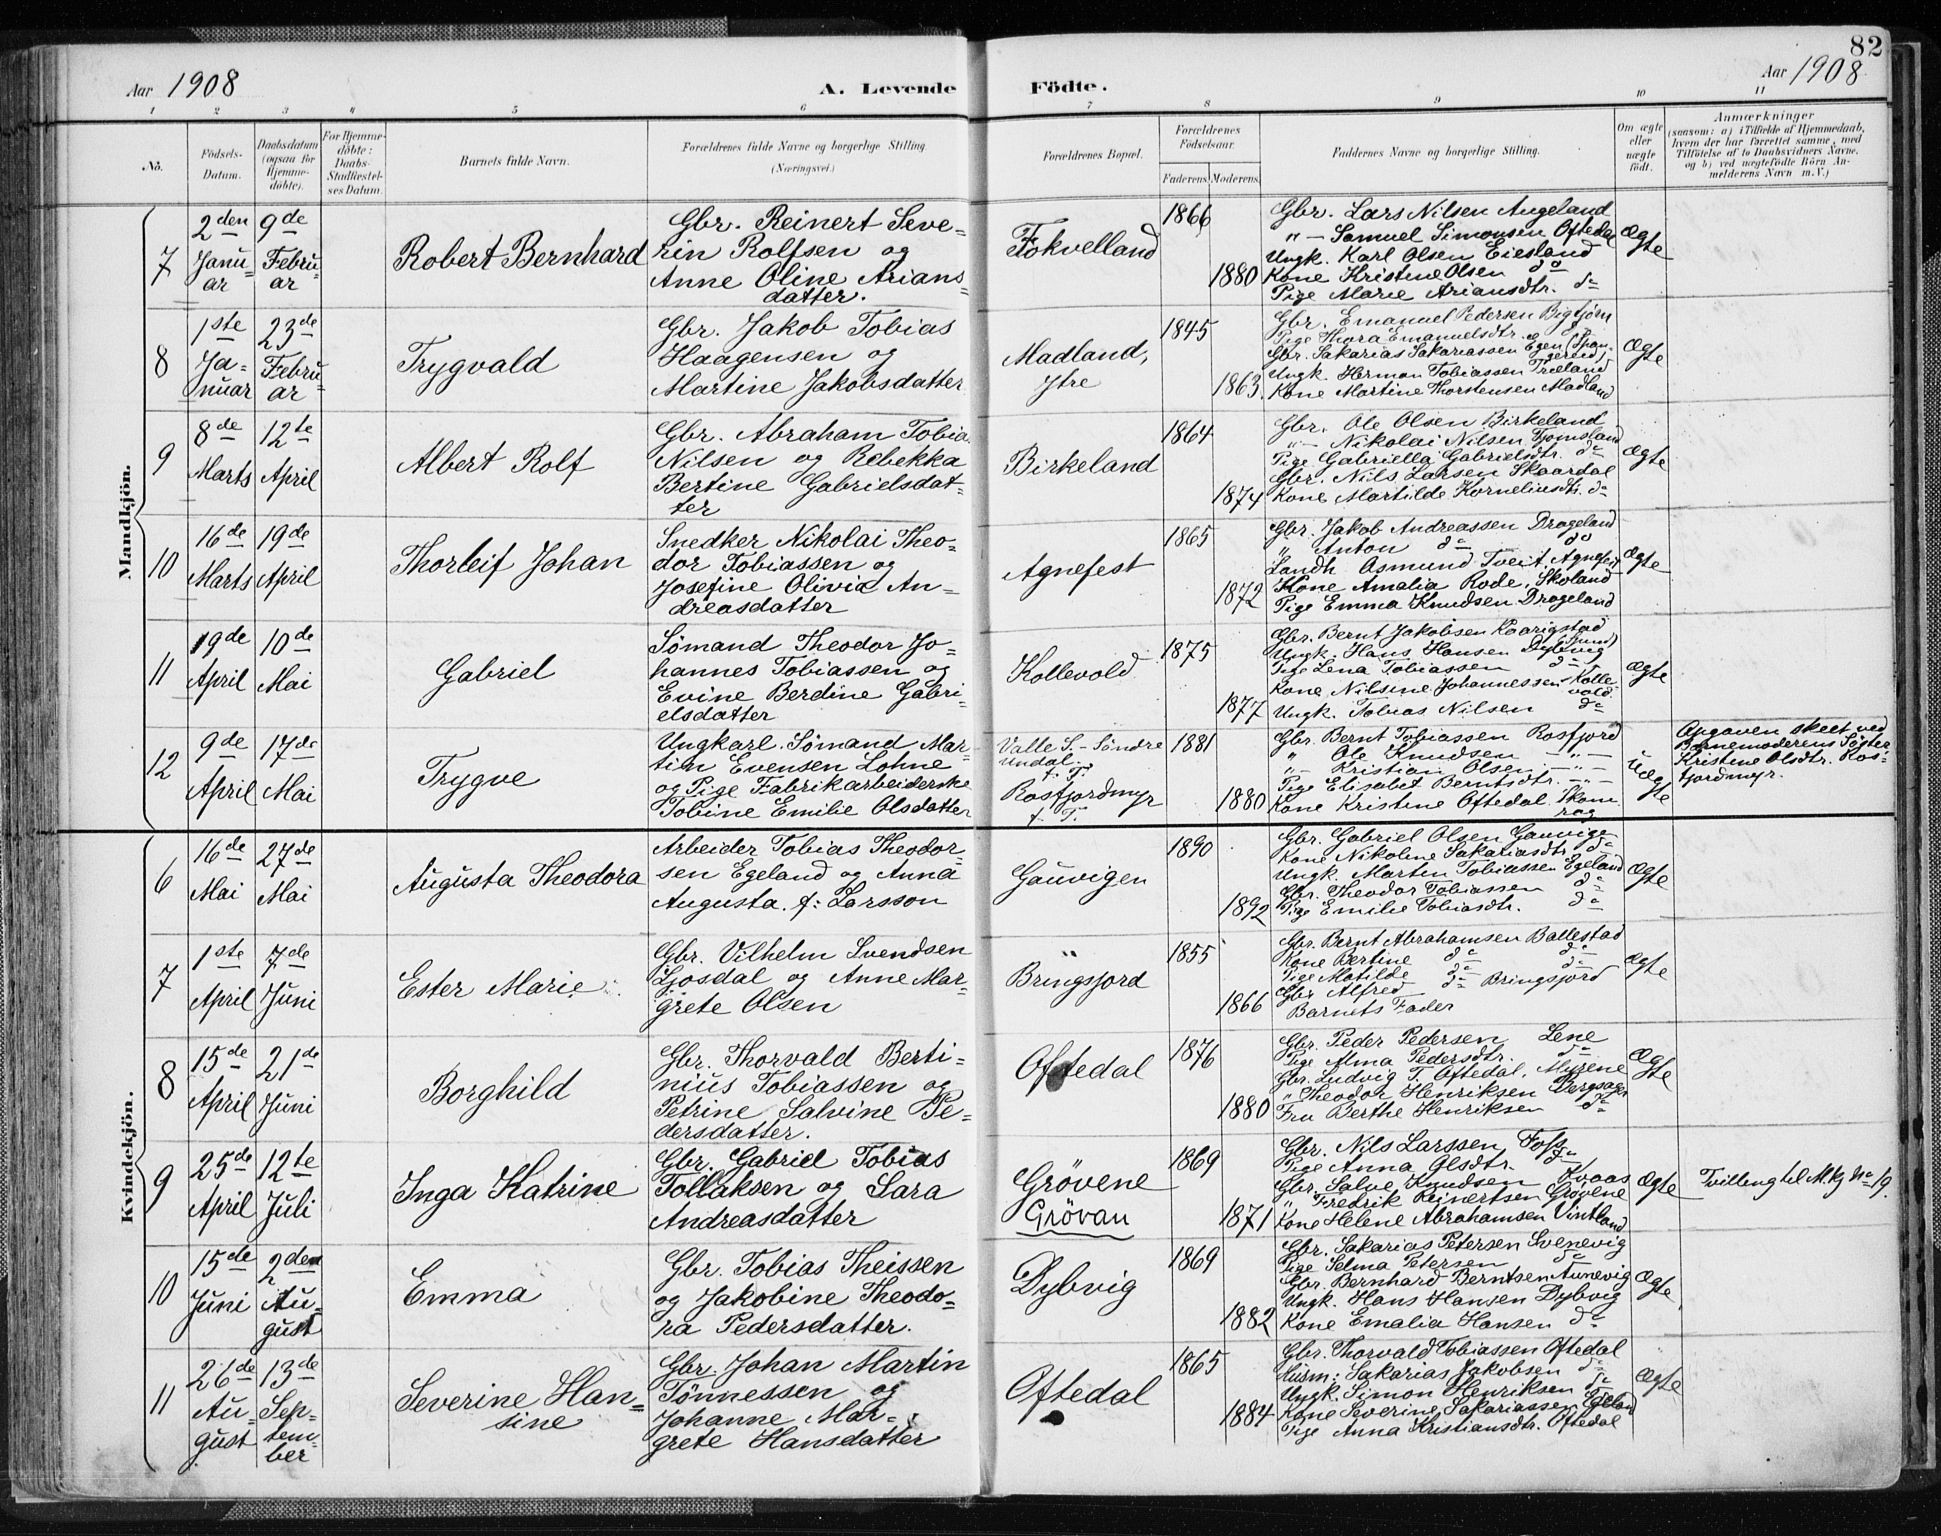 82
Aar 1908
A. Levende Födte.
Aar 1908
1 2 3 4 5 6 7 8 9 10 11
No.
Födsels-Datum.
Daabsdatum (ogsaa for Hjemme-döbte).
For Hjemme-döbte: Daabs-Stadfæstel-ses Datum.
Barnets fulde Navn.
Forældrenes fulde Navne og borgerlige Stilling. (Næringsvei.)
Forældrenes Bopæl.
Forældrenes Födselsaar.
Faderens. Moderens.
Faddernes Navne og borgerlige Stilling.
Om ægte eller uægte födt.
Anmærkninger
(saasom: a) i Tilfælde af Hjemmedaab, hvem der har forrettet samme, med Tilföielse af to Daabsvidners Navne. og b) ved uægtefödte Börn An-melderens Navn m. V.)
Mandkjön.
7
2den Janu-ar
9de Febru-ar
Robert Bernhard
Gbr. Reinert Seve-
rin Rolfsen og
Anne Oline Arians=
datter.
Fokvelland
1866
1880
Gbr. Lars Nilsen Augeland
" — Samuel Simonsen Oftedal
Ungk. Karl Olsen Eiesland
Kone Kristine Olsen do
Pige Marie Ariansdtr. do
Ægte
8
1ste Ja-nuar
23de Febru-ar
Trygvald
Gbr. Jakob Tobias
Haagensen og
Martine Jakobsdatter
Madland,
Ytre
1845
1863.
Gbr. Emanuel Pedersen Bigtjörn
Pige Thora Emanuelsdtr. do
Gbr. Sakarias Sakariassen Egen (Span-
gereid)
Ungk. Herman Tobiassen Træland
Kone Martine Thorstensen Madland
Ægte
9
8de Marts
12te April
Albert Rolf
Gbr. Abraham Tobia
Nilsen og Rebekka
Bertine Gabrielsdat-
ter
Birkeland
1864
1874
Gbr. Ole Olsen Birkeland
" — Nikolai Nilsen Fjomsland
Pige Gabriella Gabrielsdtr. do
Gbr. Nils Larsen Skaardal
Kone Martilde Korneliusdtr. do
Ægte
10
16de Marts
19de April
Thorleif Johan
Snedker Nikolai Theo-
dor Tobiassen og
Josefine Olivia An-
dreasdatter
Agnefest
1865
1872
Gbr. Jakob Andreassen Drageland
" Anton do do
Landh. Osmund Tveit, Agnefest
Kone Amalia Rode, Skoland
Pige Emma Knudsen Drageland
Ægte
11
19de April
10de Mai
Gabriel
Sömand Theodor Jo-
hannes Tobiassen og
Evine Berdine Gabri-
elsdatter
Kollevold
1875
1877
Gbr. Bernt Jakobsen Kaarigstad
Ungk. Hans Hansen Dybvig
Pige Lena Tobiassen do
Kone Nilsine Johannessen Kolle-
vold.
Ungk. Tobias Nilsen do
Ægte
12
9de April
17de Mai
Trygve
Ungkarl. Sömand Mar-
tin Evensen Lohne
og Pige Fabrikarbeiderske
Tobine Emilie Olsdatter
Valle S. - Söndre
Undal.
f. T.
Rosfjordmyr
f. T.
1881
1880
Gbr. Bernt Tobiassen Rosfjord
" Ole Knudsen — " —
" — Kristian Olsen — " —
Pige Elisabet Berntsdtr. — " —
Kone Kristine Oftedal Skom
rag
Uægte
Opgaven skeet ved
Barnemoderens Söster
Kristine Olsdtr. Ros-
fjordmyr.
Kvindekjön.
6
16de Mai
27de Mai
Augusta Theodora
Arbeider Tobias Theodor-
sen Egeland og Anna
Augusta. f: Larsson
Gauvigen
1890
1892
Gbr. Gabriel Olsen Gauvige
Kone Nikoline Sakariasdtr. do
Ungk. Martin Tobiassen Egeland
Gbr. Theodor Tobiassen do
Pige Emilie Tobiasdtr. do
Ægte
7
1ste April
7de Juni
Ester Marie
Gbr. Vilhelm Svendsen
Ljosdal og Anne Mar-
grete Olsen
"
Bringsjord
1855
1866
Gbr. Bernt Abrahamsen Ballestad
Kone Bertine do do
Pige Matilde do do
Gbr. Alfred do Bringsjord
Barnets Fader
Ægte
8
15de April
21de Juni
Borghild
Gbr. Thorvald Berti-
nius Tobiassen og
Petrine Salvine Pe-
dersdatter.
Oftedal
1876
1880
Gbr. Peder Pedersen Lene
Pige Alma Pedersdtr. do
Gbr. Ludvig T. Oftedal, Myrene
" Theodor Henriksen Bergsager
Fru Berthe Henriksen do
Ægte
9
25de April
12te Juli
Inga Katrine
Gbr. Gabriel Tobias
Tollaksen og Sara
Andreasdatter
Grövene
Grövan
1869
1871
Gbr. Nils Larssen, Foss
Pige Anna Olsdtr. do
Gbr. Salve Knudsen Kvaas
" Fredrik Reinertsen Grövene
Kone Helene Abrahamsen Vintland
Ægte
Tvilling til M.kj No 19.
10
15de Juni
2den Au-gust
Emma
Gbr. Tobias Theissen
og Jakobine Theodo-
ra Pedersdatter.
Dybvig
1869
1882
Gbr. Sakarias Petersen Svenevig
Pige Selma Petersen do
Gbr. Bernhard Berntsen Aunevig
Ungk. Hans Hansen Dybvig
Kone Emalia Hansen do
Ægte
11
26de Au-gust
13de Sep-tem-ber
Severine Han-
sine
Gbr. Johan Martin
Tönnessen og
Johanne Mar-
grete Hansdatter
Oftedal
1865
1884
Gbr. Thorvald Tobiassen Oftedal
Husm: Sakarias Jakobsen do
Ungk. Simon Henriksen do
Kone Severine Sakariassen Egeland
Pige Anna Kristiansdtr. Oftedal
Ægte